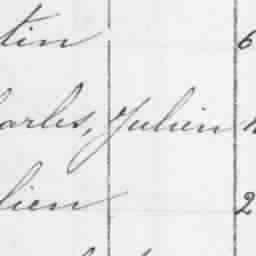 tin 6
harles, Julien
lien 2